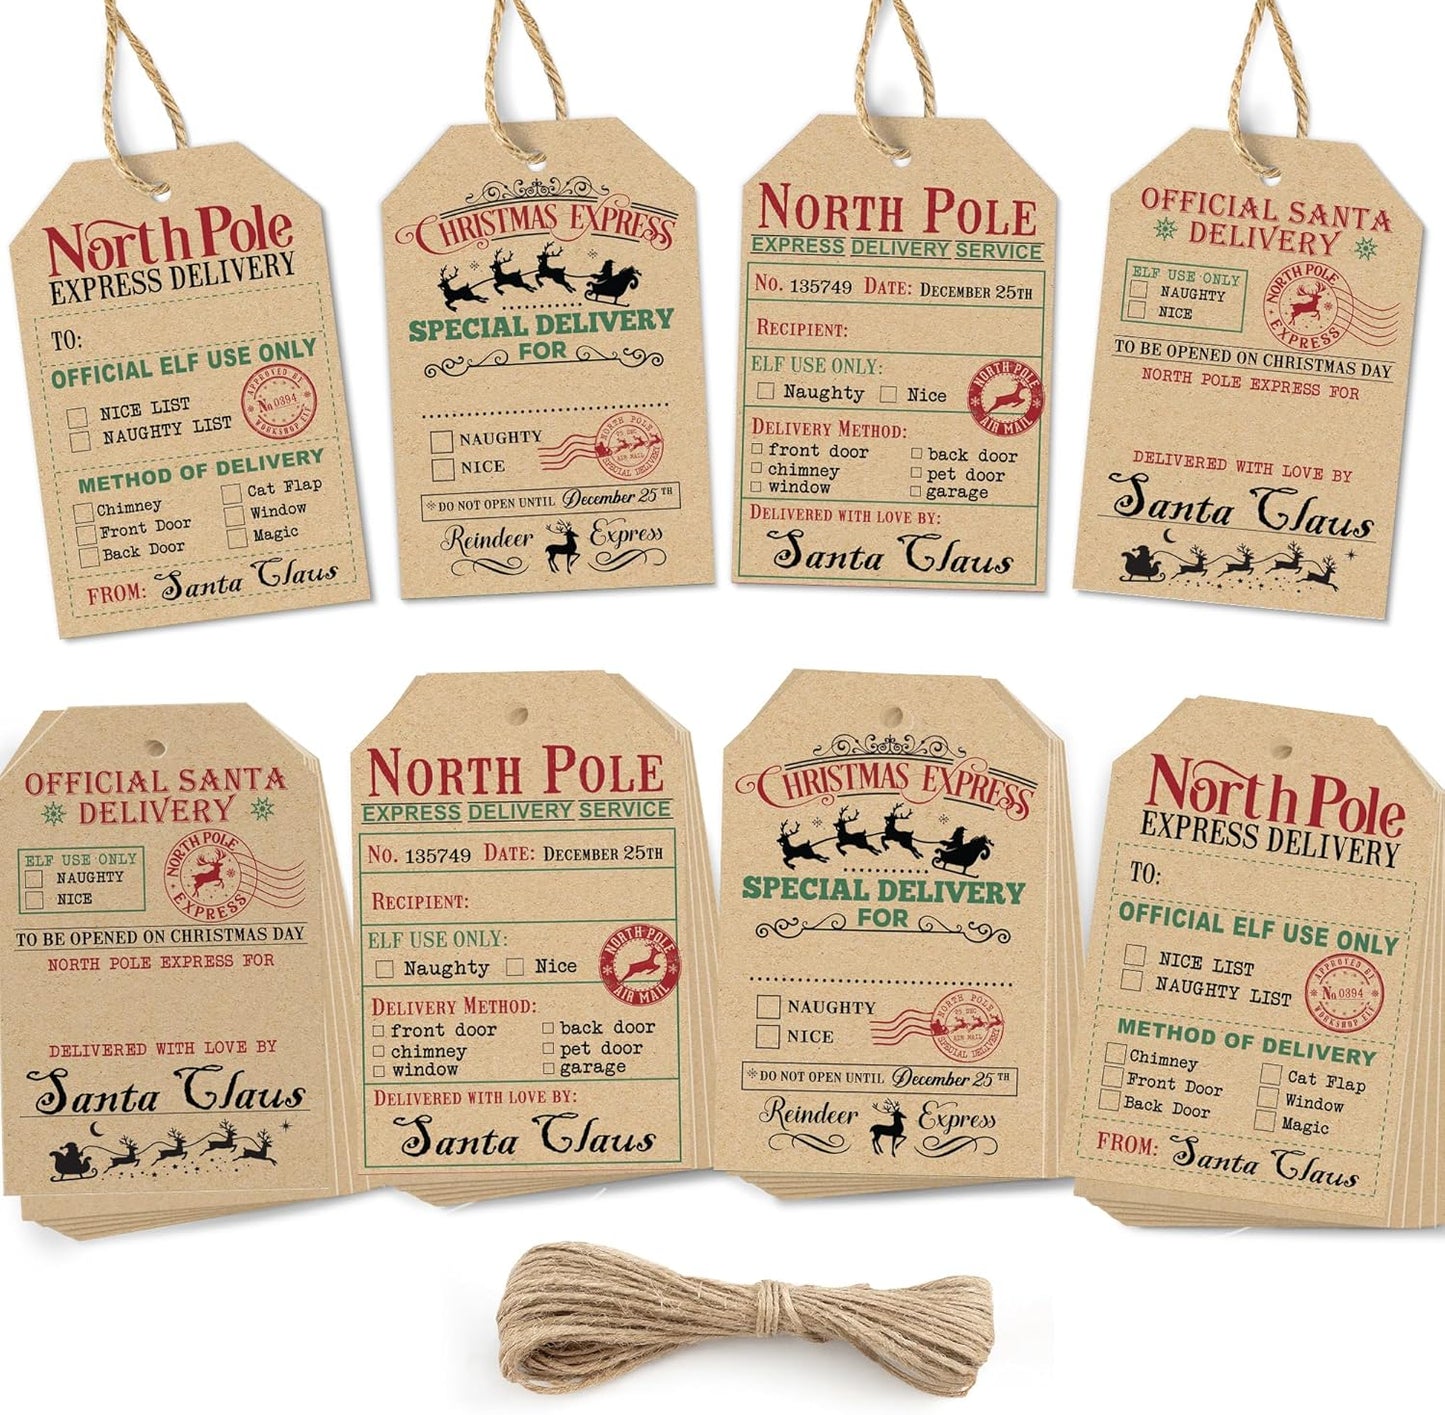 North Pole
EXPRESS DELIVERY
TO:
OFFICIAL ELF USE ONLY
NICE LIST
NAUGHTY LIST
APPROVED BY
No 0394
WORKSHOP ELF
METHOD OF DELIVERY
Chimney
Cat Flap
Front Door
Window
Back Door
Magic
FROM: Santa Claus
CHRISTMAS EXPRESS
SPECIAL DELIVERY
FOR
NAUGHTY
NICE
NORTH POLE
25 DEC
AIR MAIL
SPECIAL DELIVERY
*DO NOT OPEN UNTIL December 25TH
Reindeer Express
NORTH POLE
EXPRESS DELIVERY SERVICE
No. 135749 DATE: DECEMBER 25TH
RECIPIENT:
ELF USE ONLY:
Naughty Nice
NORTH POLE
AIR MAIL
DELIVERY METHOD:
front door back door
chimney pet door
window garage
DELIVERED WITH LOVE BY:
Santa Claus
OFFICIAL SANTA
DELIVERY
ELF USE ONLY
NAUGHTY
NICE
NORTH POLE
EXPRESS
TO BE OPENED ON CHRISTMAS DAY
NORTH POLE EXPRESS FOR
DELIVERED WITH LOVE BY
Santa Claus
OFFICIAL SANTA
DELIVERY
ELF USE ONLY
NAUGHTY
NICE
NORTH POLE
EXPRESS
TO BE OPENED ON CHRISTMAS DAY
NORTH POLE EXPRESS FOR
DELIVERED WITH LOVE BY
Santa Claus
NORTH POLE
EXPRESS DELIVERY SERVICE
No. 135749 DATE: DECEMBER 25TH
RECIPIENT:
ELF USE ONLY:
Naughty Nice
NORTH POLE
AIR MAIL
DELIVERY METHOD:
front door back door
chimney pet door
window garage
DELIVERED WITH LOVE BY:
Santa Claus
CHRISTMAS EXPRESS
SPECIAL DELIVERY
FOR
NAUGHTY
NICE
NORTH POLE
25 DEC
AIR MAIL
SPECIAL DELIVERY
*DO NOT OPEN UNTIL December 25TH
Reindeer Express
North Pole
EXPRESS DELIVERY
TO:
OFFICIAL ELF USE ONLY
NICE LIST
NAUGHTY LIST
APPROVED BY
No 0394
WORKSHOP ELF
METHOD OF DELIVERY
Chimney
Cat Flap
Front Door
Window
Back Door
Magic
FROM: Santa Claus